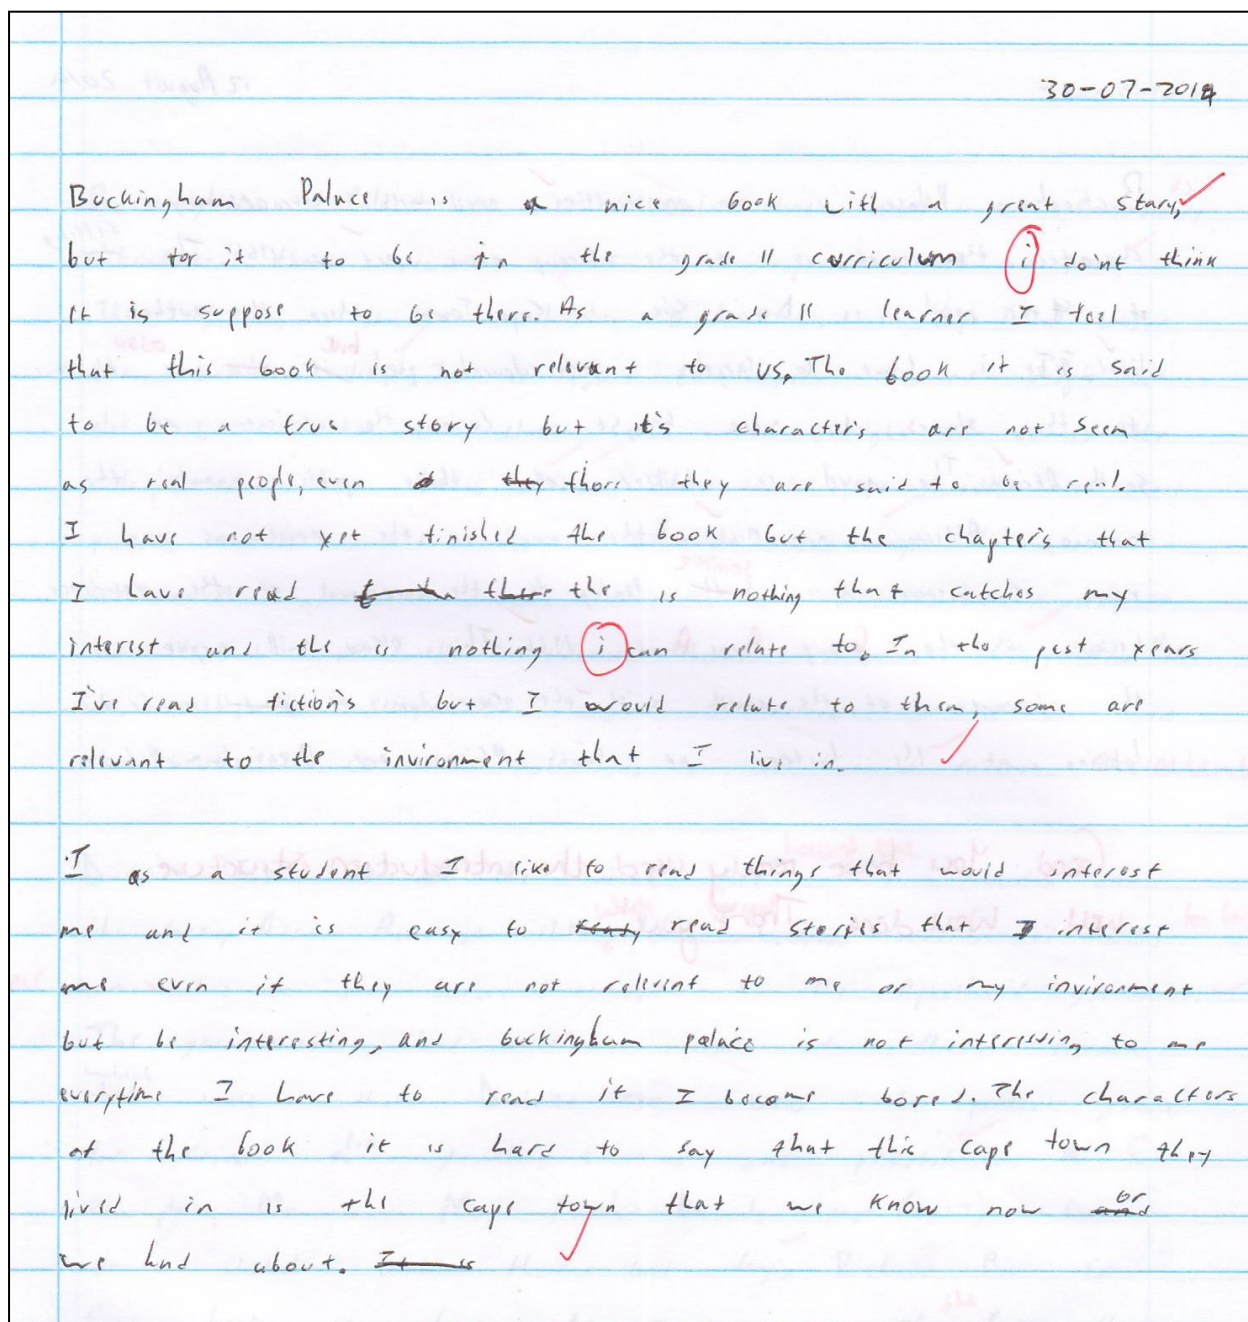 30-07-2014
Buckingham Palace is a nice book with a great story,
but for it to be in the grade 11 curriculum i do'nt think
it is suppose to be there. As a grade 11 learner I feel
that this book is not relevant to us. The book it is said
to be a true story but it's characters are not seem
as real people, even they thore they are said to be real.
I have not yet finished the book but the chapter's that
I have read there the is nothing that catches my
interest and the is nothing i can relate to. In the past years
I've read fiction's but I would relate to them, some are
relevant to the invironment that I live in.
I as a student I like to read things that would interest
me and it is easy to ready read stories that I interest
me even if they are not relevent to me or my invironment
but be interesting, and buckingham palace is not interesting to me
everytime I have to read it I become bored. The characters
of the book it is hard to say that this cape town they
lived in is the cape town that we know now and or
we had about. It is